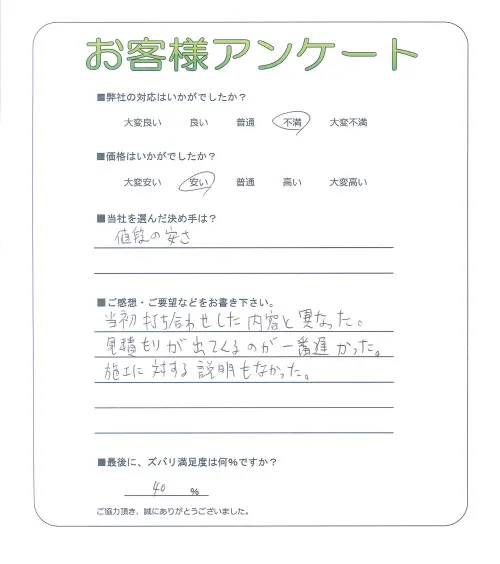 お客様アンケート
■弊社の対応はいかがでしたか？
大変良い 良い 普通 不満 大変不満
■価格はいかがでしたか？
大変安い 安い 普通 高い 大変高い
■当社を選んだ決め手は？
値段の安さ
■ご感想・ご要望などをお書き下さい。
当初打ち合わせした内容と異なった。
見積もりが出てくるのが一番遅かった。
施工に対する説明もなかった。
■最後に、ズバリ満足度は何%ですか？
40 %
ご協力頂き、誠にありがとうございました。